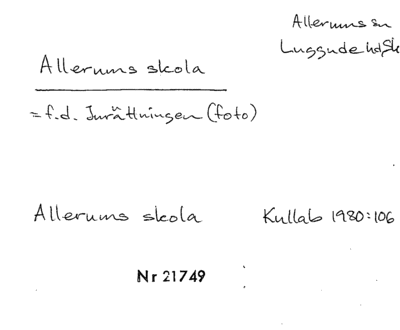 Allerums sn
Luggude hd, Sk
Allerums skola
= f.d. Inrättningen (foto)
Allerums skola Kullab 1980:106
Nr 21749